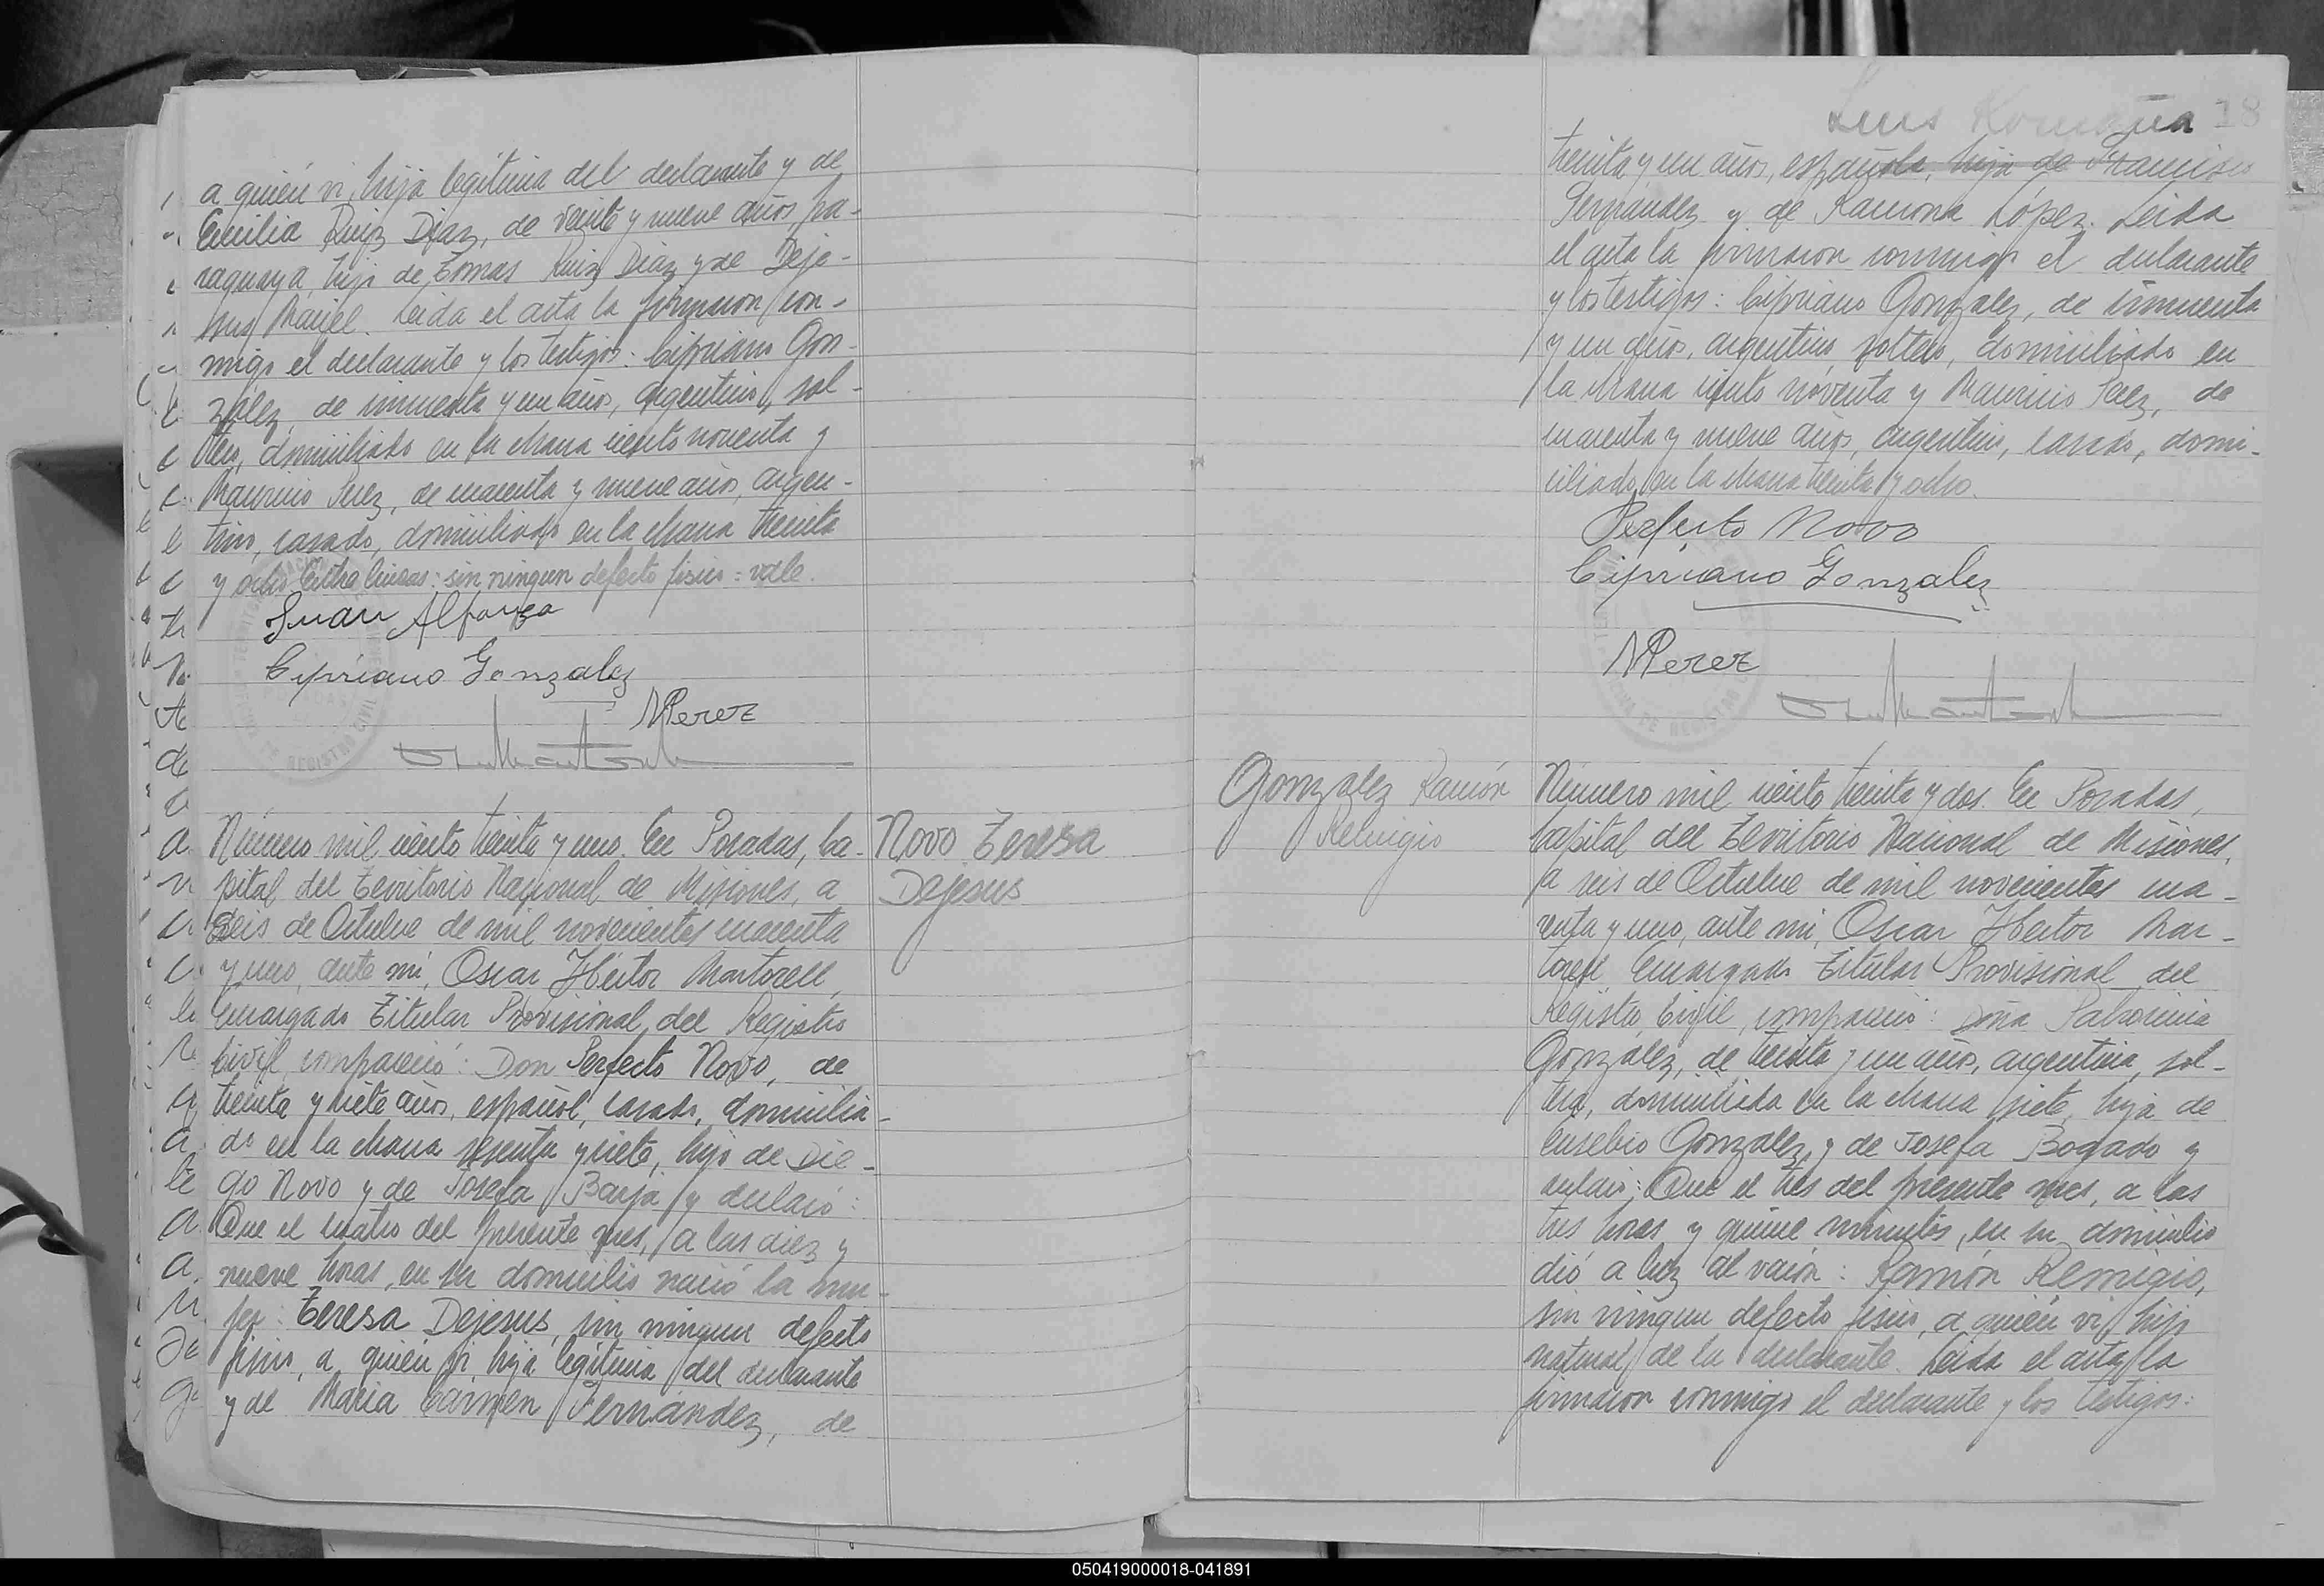 a quién vi, hija legítima del declarante y de
Emilia Ruiz Diaz, de veinte y nueve años, pa-
raguaya, hija de Tomas Ruiz Diaz y de Deje-
sus Maijel. Leida el acta la firmaron con-
migo el declarante y los testigos: Cipriano Gon-
zález, de cincuenta y un años, argentino, sol-
tero, domiciliado en la chacra ciento noventa y
Mauricio Perez, de cuarenta y nueve años, argen-
tino, casado, domiciliado en la chacra treinta
y ocho. Entre lineas: sin ningun defecto fisico = vale.
Juan Alfonzo
Cipriano Gonzalez
MPerez
Número mil ciento treinta y uno. En Posadas, Ca-
pital del Territorio Nacional de Misiones, a
seis de Octubre de mil novecientos cuarenta
y uno, ante mí, Oscar Héctor Martorell,
Encargado Titular Provisional del Registro
Civil, compareció: Don Perfecto Novo, de
treinta y siete años, español, casado, domicilia-
do en la chacra sesenta y siete, hijo de Die-
go Novo y de Josefa Barja y declaró:
Que el cuatro del presente mes, a las diez y
nueve horas, en su domicilio nació la mu-
jer: Teresa Dejesus, sin ningun defecto
fisico, a quien vi, hija legítima del declarante
y de Maria Carmen Fernández, de
Novo Teresa
Dejesus
Luis Romaña 18
treinta y un años, española, hija de Francisco
Fernández y de Ramona López. Leida
el acta la firmaron conmigo el declarante
y los testigos: Cipriano González, de cincuenta
y un años, argentino, soltero, domiciliado en
la chacra ciento noventa y Mauricio Perez, de
cuarenta y nueve años, argentino, casado, domi-
ciliado en la chacra treinta y ocho.
Perfecto Novo
Cipriano Gonzalez
MPerez
Gonzalez Ramón
Remigio
Número mil ciento treinta y dos. En Posadas,
Capital del Territorio Nacional de Misiones,
a seis de Octubre de mil novecientos cua-
renta y uno, ante mi, Oscar Héctor Mar-
torell, Encargado Titular Provisional del
Registro Civil, compareció: Doña Patrocinia
González, de treinta y un años, argentina, sol-
tera, domiciliada en la chacra siete, hija de
Eusebio González y de Josefa Bogado y
declaró: Que el tres del presente mes, a las
tres horas y quince minutos, en su domicilio
dió a luz al varón: Ramón Remigio,
sin ningun defecto fisico, a quién vi, hijo
natural de la declarante. Leida el acta, la
firmaron conmigo el declarante y los testigos:
050419000018-041891